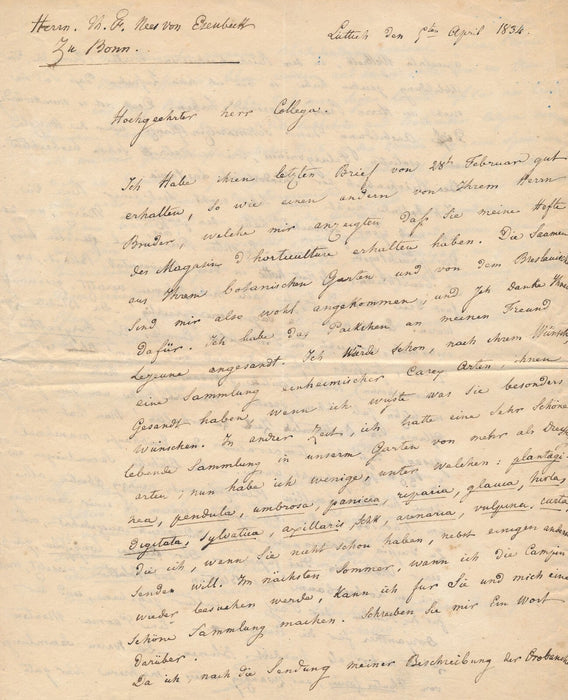 Herrn. Th. Fr. Nees von Esenbeck
Zu Bonn.
Luttich den 9ten April 1834.
Hochgeehrter herr Collega.
Ich Habe ihren letzten Brief von 28t Februar gut
erhalten, So wie einen andern von Ihrem Herrn
Bruder, welche mir anzeigten daß Sie meine Hefte
des Magasin d'horticulture erhalten haben. Die Saamen
aus Ihrem botanischen Garten und von dem Breslauer
Sind mir also wohl angekommen, und Ich Danke Ihnen
dafür. Ich habe das Päckchen an meinen Freund
Lejeune angesandt. Ich Würde schon, nach ihrem Wünsch,
eine Sammlung einheimischer Carex Arten, ihnen
Gesandt haben, wenn ich wüste was sie besonders
Wünschen. In ander Zeit, ich hatte eine Sehr Schöne
lebende Sammlung in unserm Garten von mehr als Dreyß
arten; nun habe ich wenige, unter Welchen: plantagi-
nea, pendula, umbrosa, panicea, riparia, glauca, hirta,
Digitata, Sylvatica, axillaris, arenaria, vulpina, curta
die ich, wenn Sie nicht schon haben, nebst einigen andern
Senden will. Im nächsten Sommer, wann ich die Campin
wieder besuchen werde, kann ich für Sie und mich eine
Schöne Sammlung machen. Schreiben Sie mir Ein Wort
darüber.
Da ich nach die Sendung meiner Beschreibung der